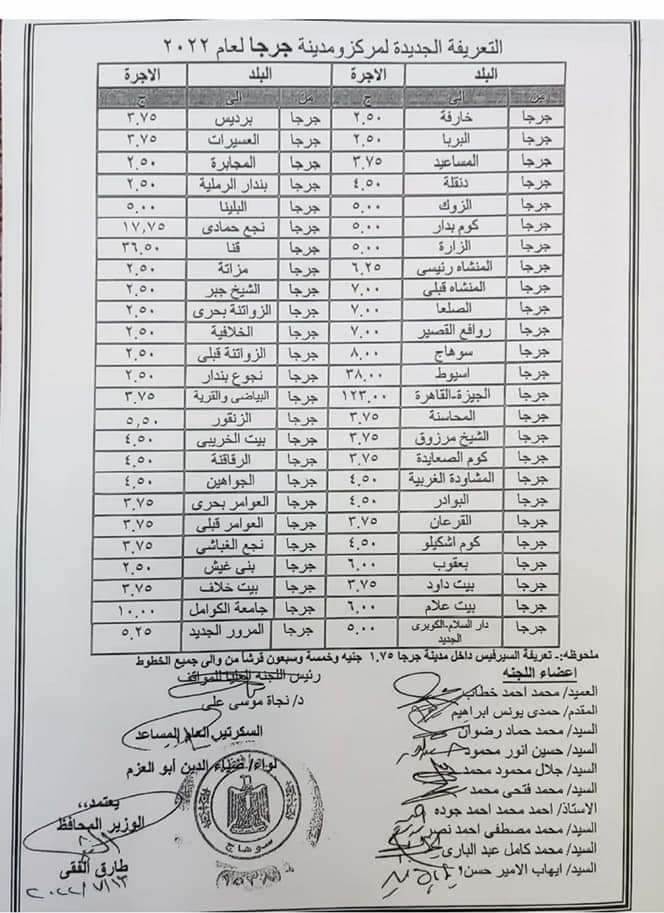 التعريفة الجديدة لمركز ومدينة جرجا لعام ٢٠٢٢
البلد الاجرة البلد الاجرة
من الى ج من الى ج
جرجا خارفة ٢,٥٠ جرجا برديس ٣,٧٥
جرجا البربا ٢,٥٠ جرجا العسيرات ٣,٧٥
جرجا المساعيد ٣,٧٥ جرجا المجابرة ٢,٥٠
جرجا دنقلة ٤,٥٠ جرجا بندار الرملية ٢,٥٠
جرجا الزوك ٥,٠٠ جرجا البلينا ٥,٠٠
جرجا كوم بدار ٥,٠٠ جرجا نجع حمادى ١٧,٧٥
جرجا الزارة ٥,٠٠ جرجا قنا ٣٦,٥٠
جرجا المنشاه رئيسى ٦,٢٥ جرجا مزاتة ٢,٥٠
جرجا المنشاه قبلى ٧,٠٠ جرجا الشيخ جبر ٢,٥٠
جرجا الصلعا ٧,٠٠ جرجا الزواتنة بحرى ٢,٥٠
جرجا روافع القصير ٧,٠٠ جرجا الخلافية ٢,٥٠
جرجا سوهاج ٨,٠٠ جرجا الزواتنة قبلى ٢,٥٠
جرجا اسيوط ٣٨,٠٠ جرجا نجوع بندار ٢,٥٠
جرجا الجيزة-القاهرة ١٢٣,٠٠ جرجا البياضى والقرية ٣,٧٥
جرجا المحاسنة ٣,٧٥ جرجا الزنقور ٥,٥٠
جرجا الشيخ مرزوق ٣,٧٥ جرجا بيت الخريبى ٤,٥٠
جرجا كوم الصعايدة ٣,٧٥ جرجا الرقاقنة ٤,٥٠
جرجا المشاودة الغربية ٤,٥٠ جرجا الجواهين ٤,٥٠
جرجا البوادر ٤,٥٠ جرجا العوامر بحرى ٣,٧٥
جرجا القرعان ٣,٧٥ جرجا العوامر قبلى ٣,٧٥
جرجا كوم اشكيلو ٤,٥٠ جرجا نجع الغباشي ٣,٧٥
جرجا يعقوب ٦,٠٠ جرجا بنى غيش ٢,٥٠
جرجا بيت داود ٣,٧٥ جرجا بيت خلاف ٣,٧٥
جرجا بيت علام ٦,٠٠ جرجا جامعة الكوامل ١٠,٠٠
جرجا دار السلام-الكوبرى الجديد ٥,٠٠ جرجا المرور الجديد ٥,٢٥
ملحوظه:- تعريفة السيرفيس داخل مدينة جرجا ١,٧٥ جنيه وخمسة وسبعون قرشا من والى جميع الخطوط
أعضاء اللجنه
العميد/ محمد احمد خطاب
المقدم/ حمدى يونس ابراهيم
السيد/ محمد حماد رضوان
السيد/ حسين انور محمود
السيد/ جلال محمود محمد
السيد/ محمد فتحى محمد
الاستاذ/ احمد محمد احمد جوده
السيد/ محمد مصطفى احمد نصر
السيد/ محمد كامل عبد البارى
السيد/ ايهاب الامير حسن
رئيس اللجنه العليا للمواقف
د/ نجاة موسى على
السكرتير العام المساعد
لواء/ ضياء الدين أبو العزم
سوهاج
يعتمد،،
الوزير المحافظ
طارق الفقى
٢٠٢٢/٧/١٣